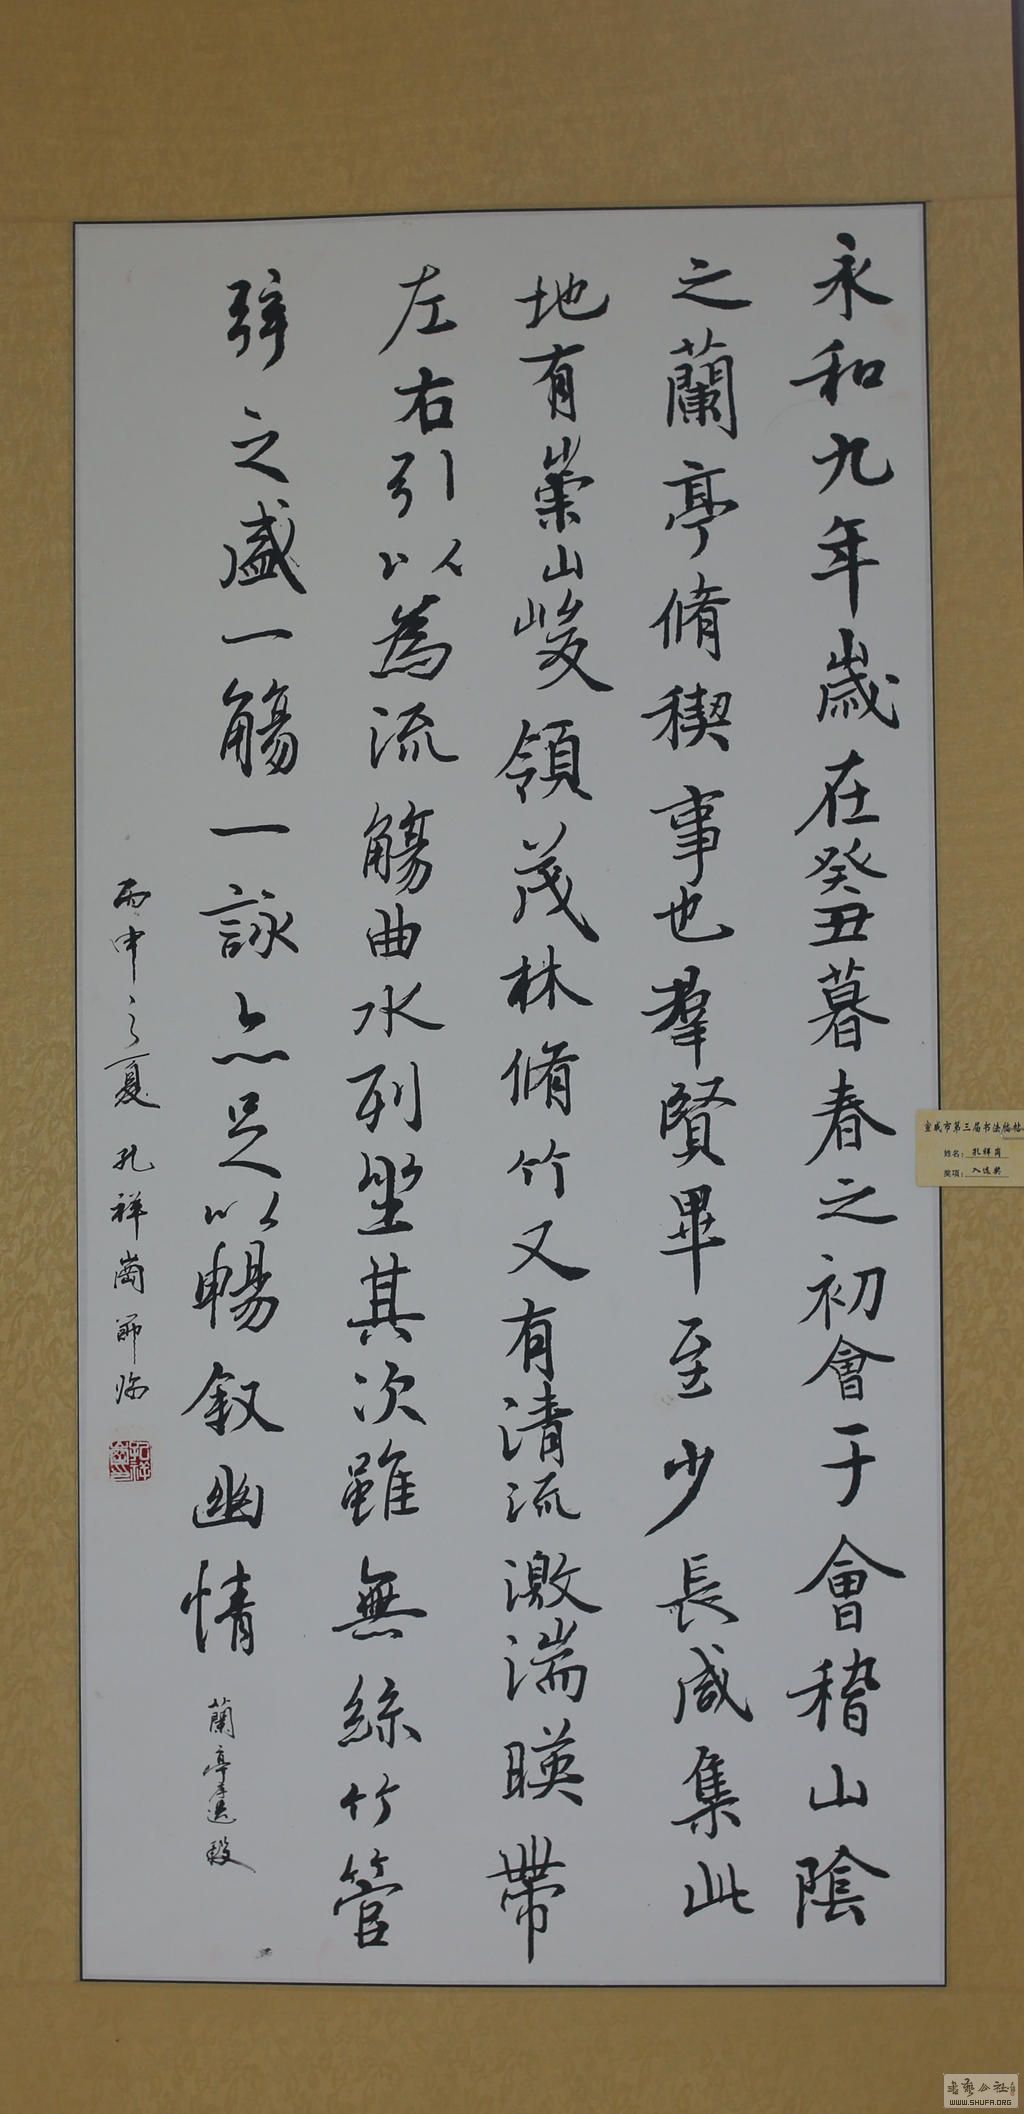 永和九年歲在癸丑暮春之初會于會稽山陰
之蘭亭脩稧事也羣賢畢至少長咸集此
地有崇山峻領茂林脩竹又有清流激湍暎帶
左右引以為流觴曲水列坐其次雖無絲竹管
弦之盛一觴一詠亦足以暢叙幽情
蘭亭序選段
丙申之夏 孔祥崗師臨
宣威市第三届书法临帖
姓名:孔祥岗
奖项:入选奖
书艺公社
WWW.SHUFA.ORG